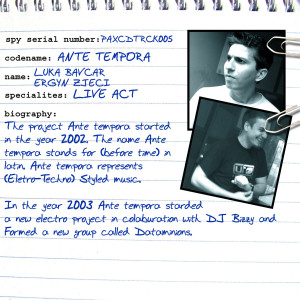 spy serial number:PAXCDTRCK005
codename: ANTE TEMPORA
name: LUKA BAVCAR
ERGYN ZJECI
specialites: LIVE ACT
biography:
The project Ante tempora started
in the year 2002. The name Ante
tempora stands for (before time) in
latin. Ante tempora represents
(Eletro-Techno) Styled music.
In the year 2003 Ante tempora starded
a new electro project in colaburation with DJ Bizzy and
Formed a new group called Dataminions.